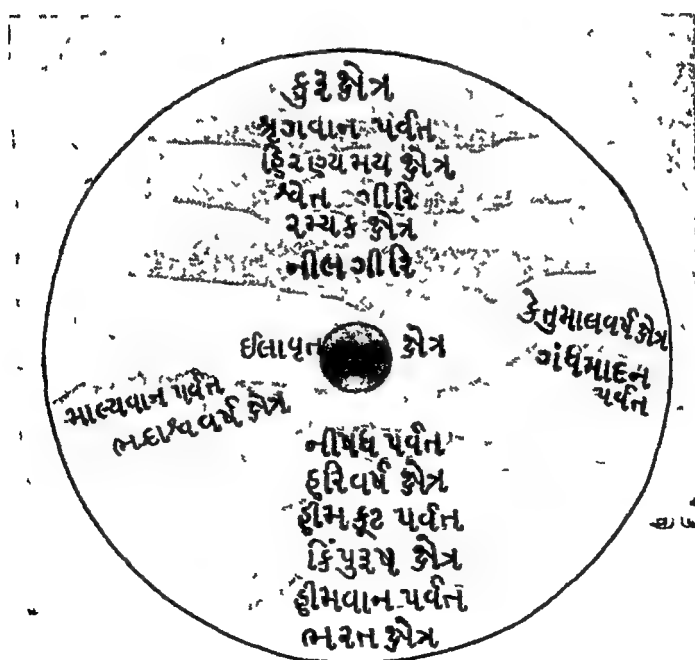 કુરુક્ષેત્ર
શ્રૃગવાન પર્વત
હિરણ્યમય ક્ષેત્ર
શ્વેત ગીરિ
રમ્યક ક્ષેત્ર
નીલગીરિ
કેતુમાલવર્ષ ક્ષેત્ર
ગંધમાદન
પર્વત
ઈલાવૃત ક્ષેત્ર
માલ્યવાન પર્વત
ભદાશ્વ વર્ષ ક્ષેત્ર
નીષધ પર્વત
હરિવર્ષ ક્ષેત્ર
હીમકૂટ પર્વત
કિંપુરુષ ક્ષેત્ર
હીમવાન પર્વત
ભરત ક્ષેત્ર